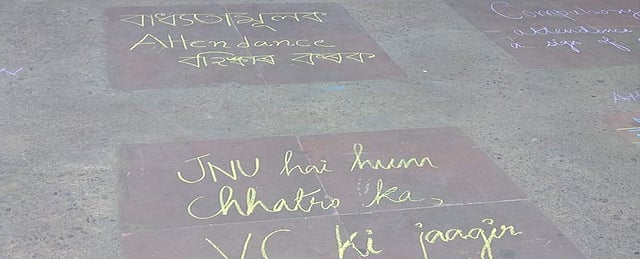 বাধ্যতামূলক
Attendance
বহিষ্কাৰ কৰক
Compulsory
attendance
a sign of
JNU hai hum
chhatro ka,
VC ki jaagir